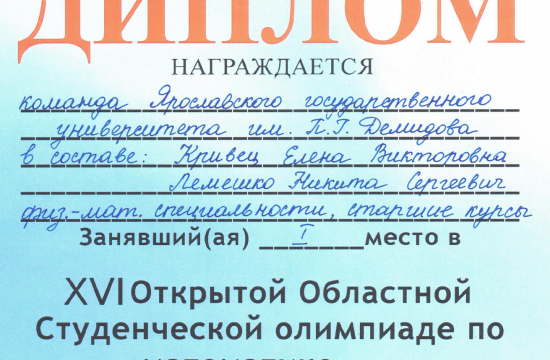 ДИПЛОМ
НАГРАЖДАЕТСЯ
команда Ярославского государственного
университета им. П.Г. Демидова
в составе: Кривец Елена Викторовна
Лемешко Никита Сергеевич
физ.-мат. специальности, старшие курсы
Занявший(ая) I место в
XVI Открытой Областной
Студенческой олимпиаде по